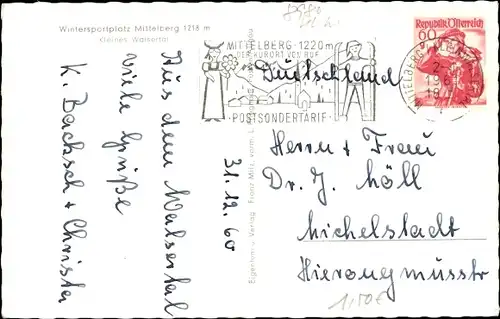 Wintersportplatz Mittelberg 1218 m
Kleines Walsertal
Aus dem Walsertal
viele Grüße
K. Bachsch + Christa
31.12.60
Eigentum u. Verlag: Franz Milz, vorm. L.
MITTELBERG · 1220 m
DER KURORT VON RUF
POSTSONDERTARIF
Republik Österreich
60
MITTELBERG
Deutschland
Herrn + Frau
Dr. J. Höll
Michelstadt
Hieronymusstr
1,50€